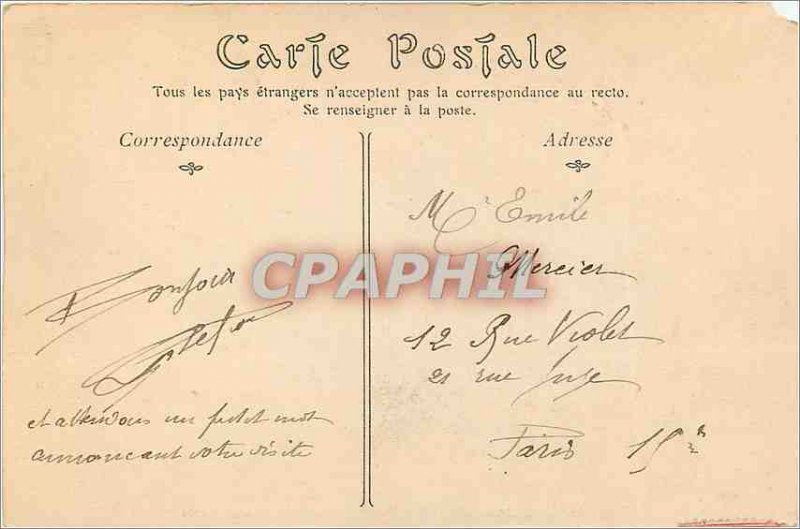 Carte Postale
Tous les pays étrangers n'acceptent pas la correspondance au recto.
Se renseigner à la poste.
Correspondance
Adresse
Bonjour
et attendons un petit mot
annoncant votre visite
Mr Emile
Mercier
12 Rue Violet
21 rue Juge
Paris 15e
CPAPHIL